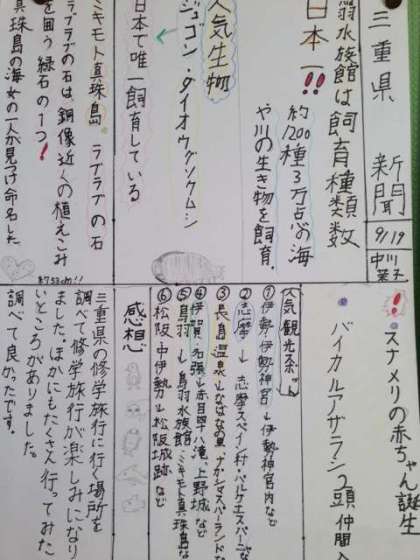 三重県 新聞
9/19
中川
葉子
鳥羽水族館は飼育種類数
日本一!!
約1200種3万点の海
や川の生き物を飼育.
人気生物
ジュゴン・ダイオウグソクムシ
日本で唯一飼育している
ミキモト真珠島. ラブラブの石
ラブラブの石は、銅像近くの植えこみ
を囲う緑石の1つ!
真珠島の海女の一人が見つけ命名した
!!
スナメリの赤ちゃん誕生
バイカルアザラシ2頭 仲間
人気観光
①伊勢 伊勢神宮→伊勢神宮内など
②志摩 → 志摩スペイン村・パルケエスパーニャ
③長島温泉→なばなの里、ナガシマスパーランドなど
④伊賀・名張→赤目四十八滝、上野城など
⑤鳥羽 → 鳥羽水族館・ミキモト真珠島など
⑥松阪・中伊勢→松阪城跡 など
感想
三重県の修学旅行に行く場所を
調べて修学旅行が楽しみになり
ました。ほかにもたくさん行ってみた
いところがありました。
調べて良かったです。